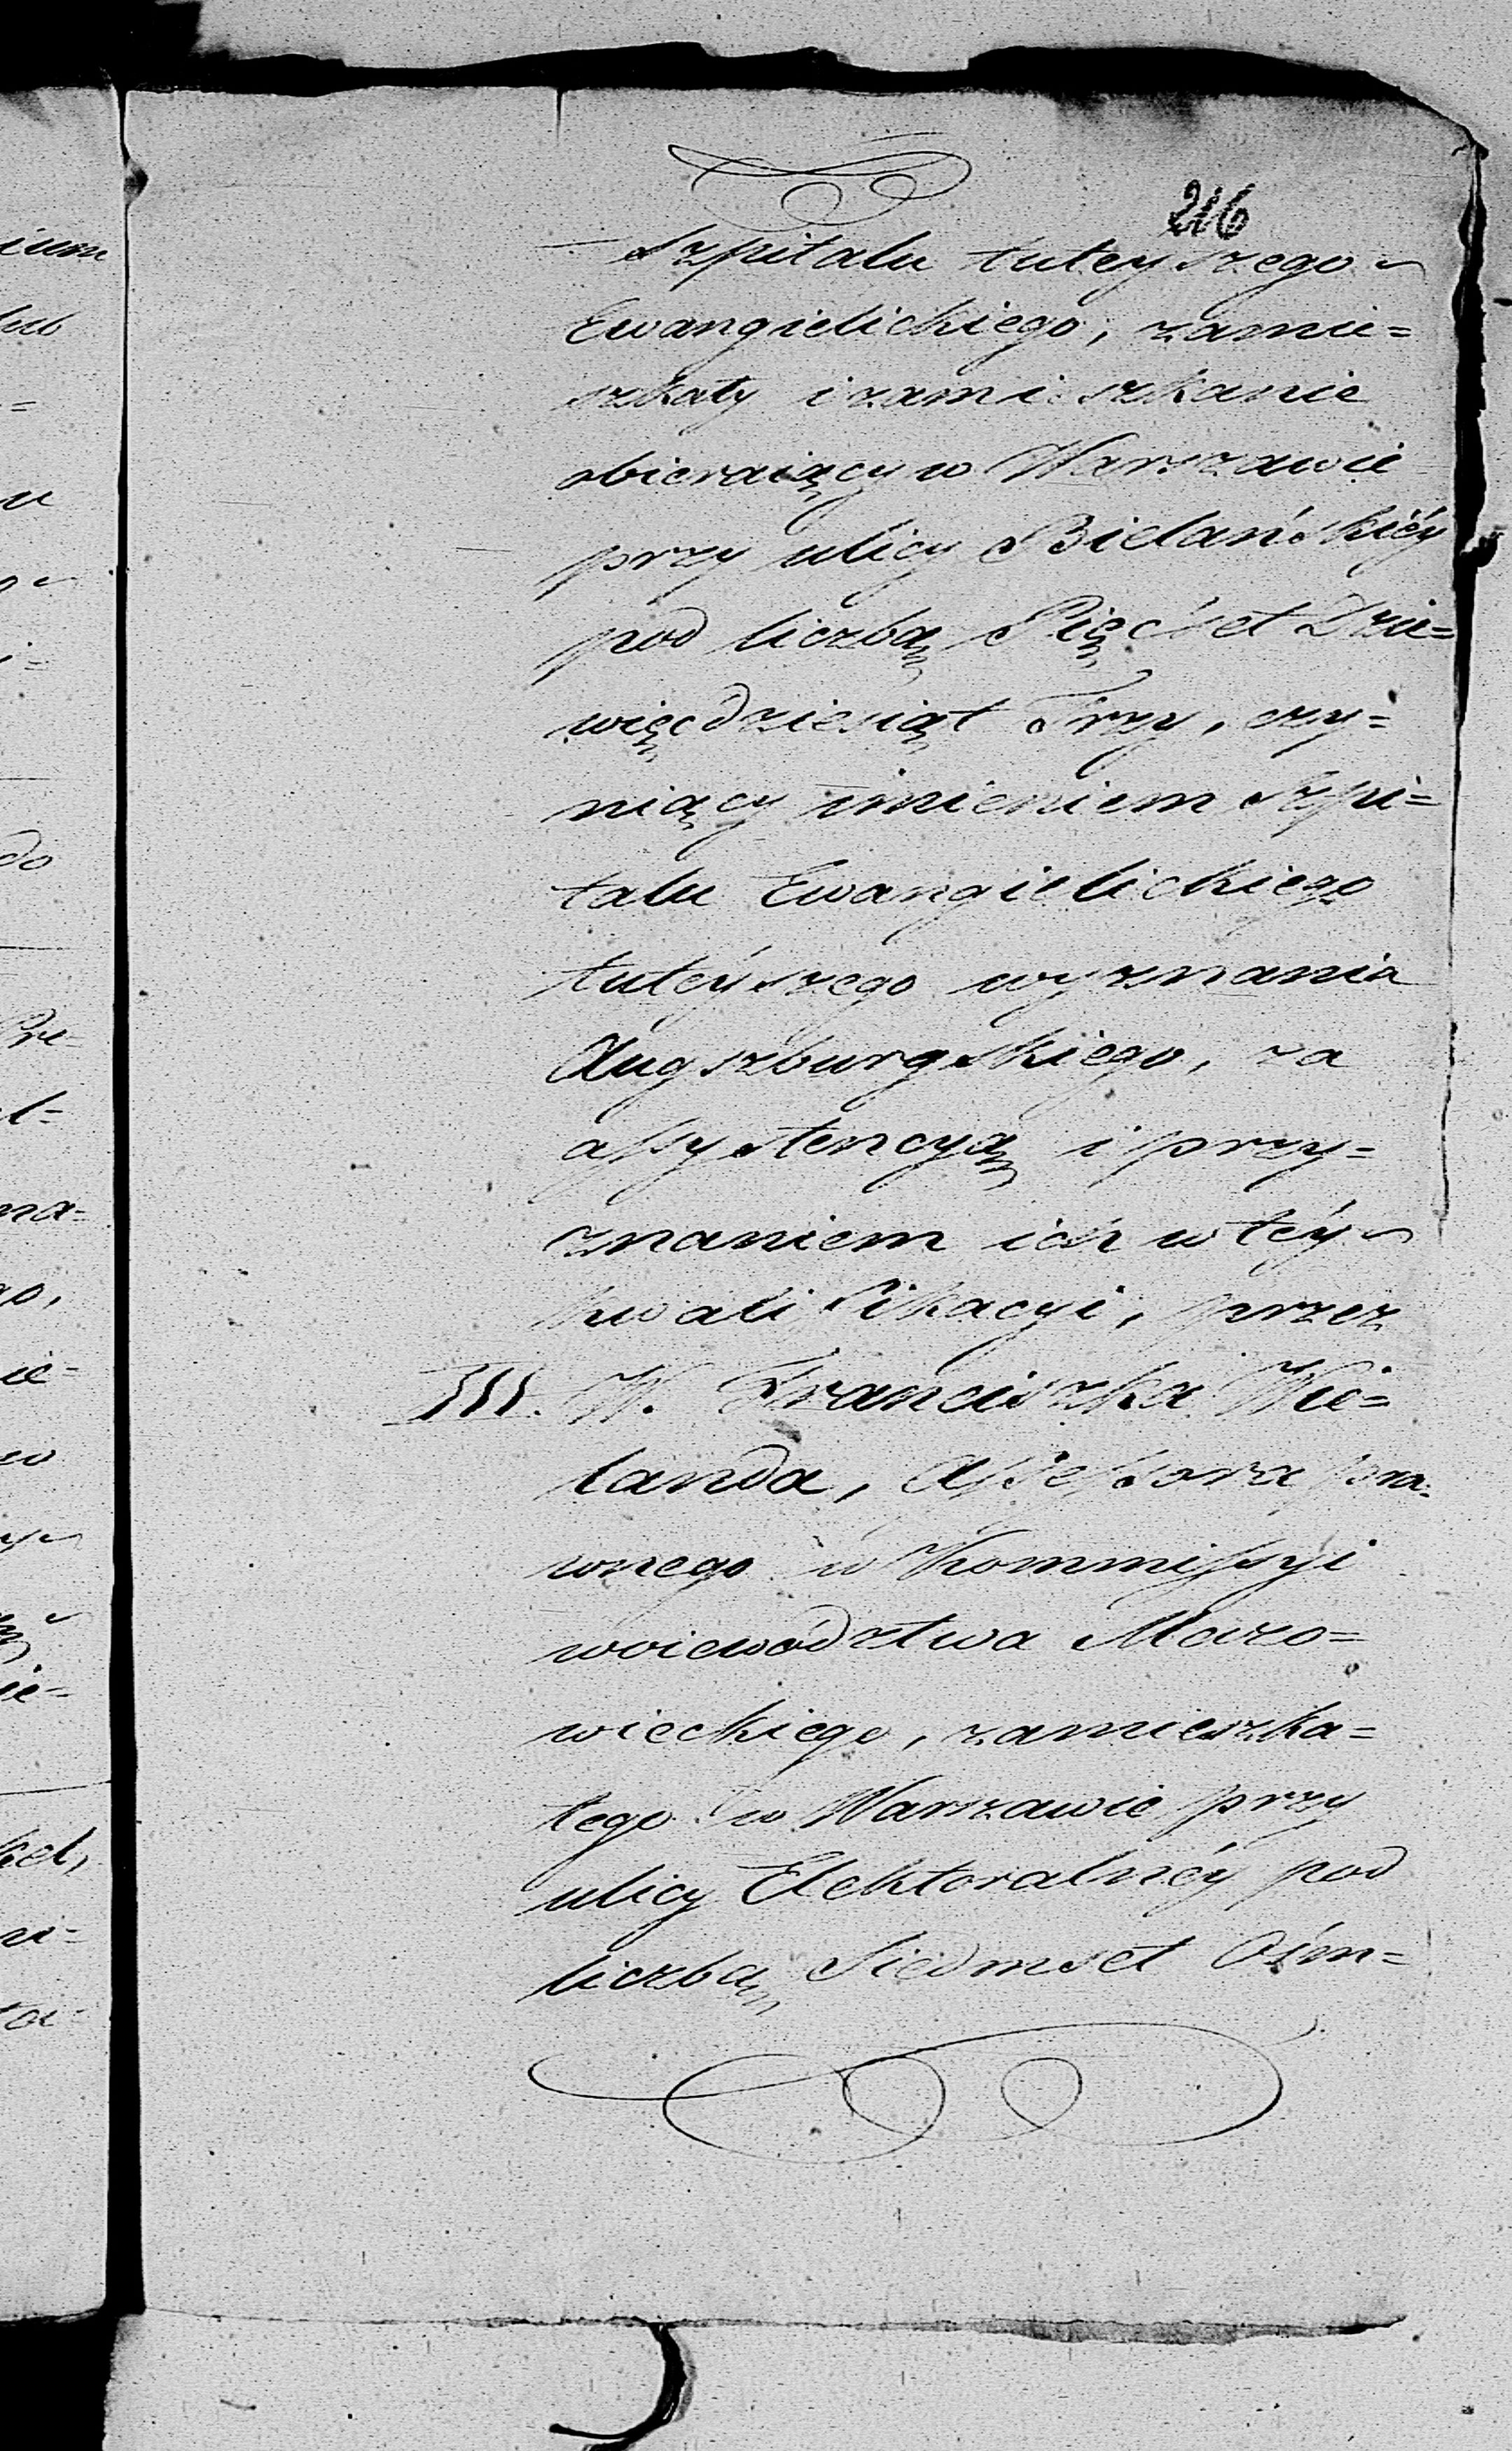 216
Szpitalu tuteyszego
Ewangielickiego, zamie=
szkały i zamieszkanie
obieraiący w Warszawie
przy ulicy Bielańskiéy
pod liczbą Pięćset Dzie=
więćdziesiąt Trzy, czy=
niący imieniem Szpi=
talu Ewangielickiego
tuteyszego wyznania
Augszburgskiego, za
assystencyą i przy=
znaniem ich w téy
kwalifikacyi, przez
III. W. Franciszka Wie=
landa, Assessora pra=
wnego w Kommissyi
woiewództwa Mazo=
wieckiego, zamieszka=
łego w Warszawie przy
ulicy Elektoralnéy pod
liczbą Siedmset Ośm=